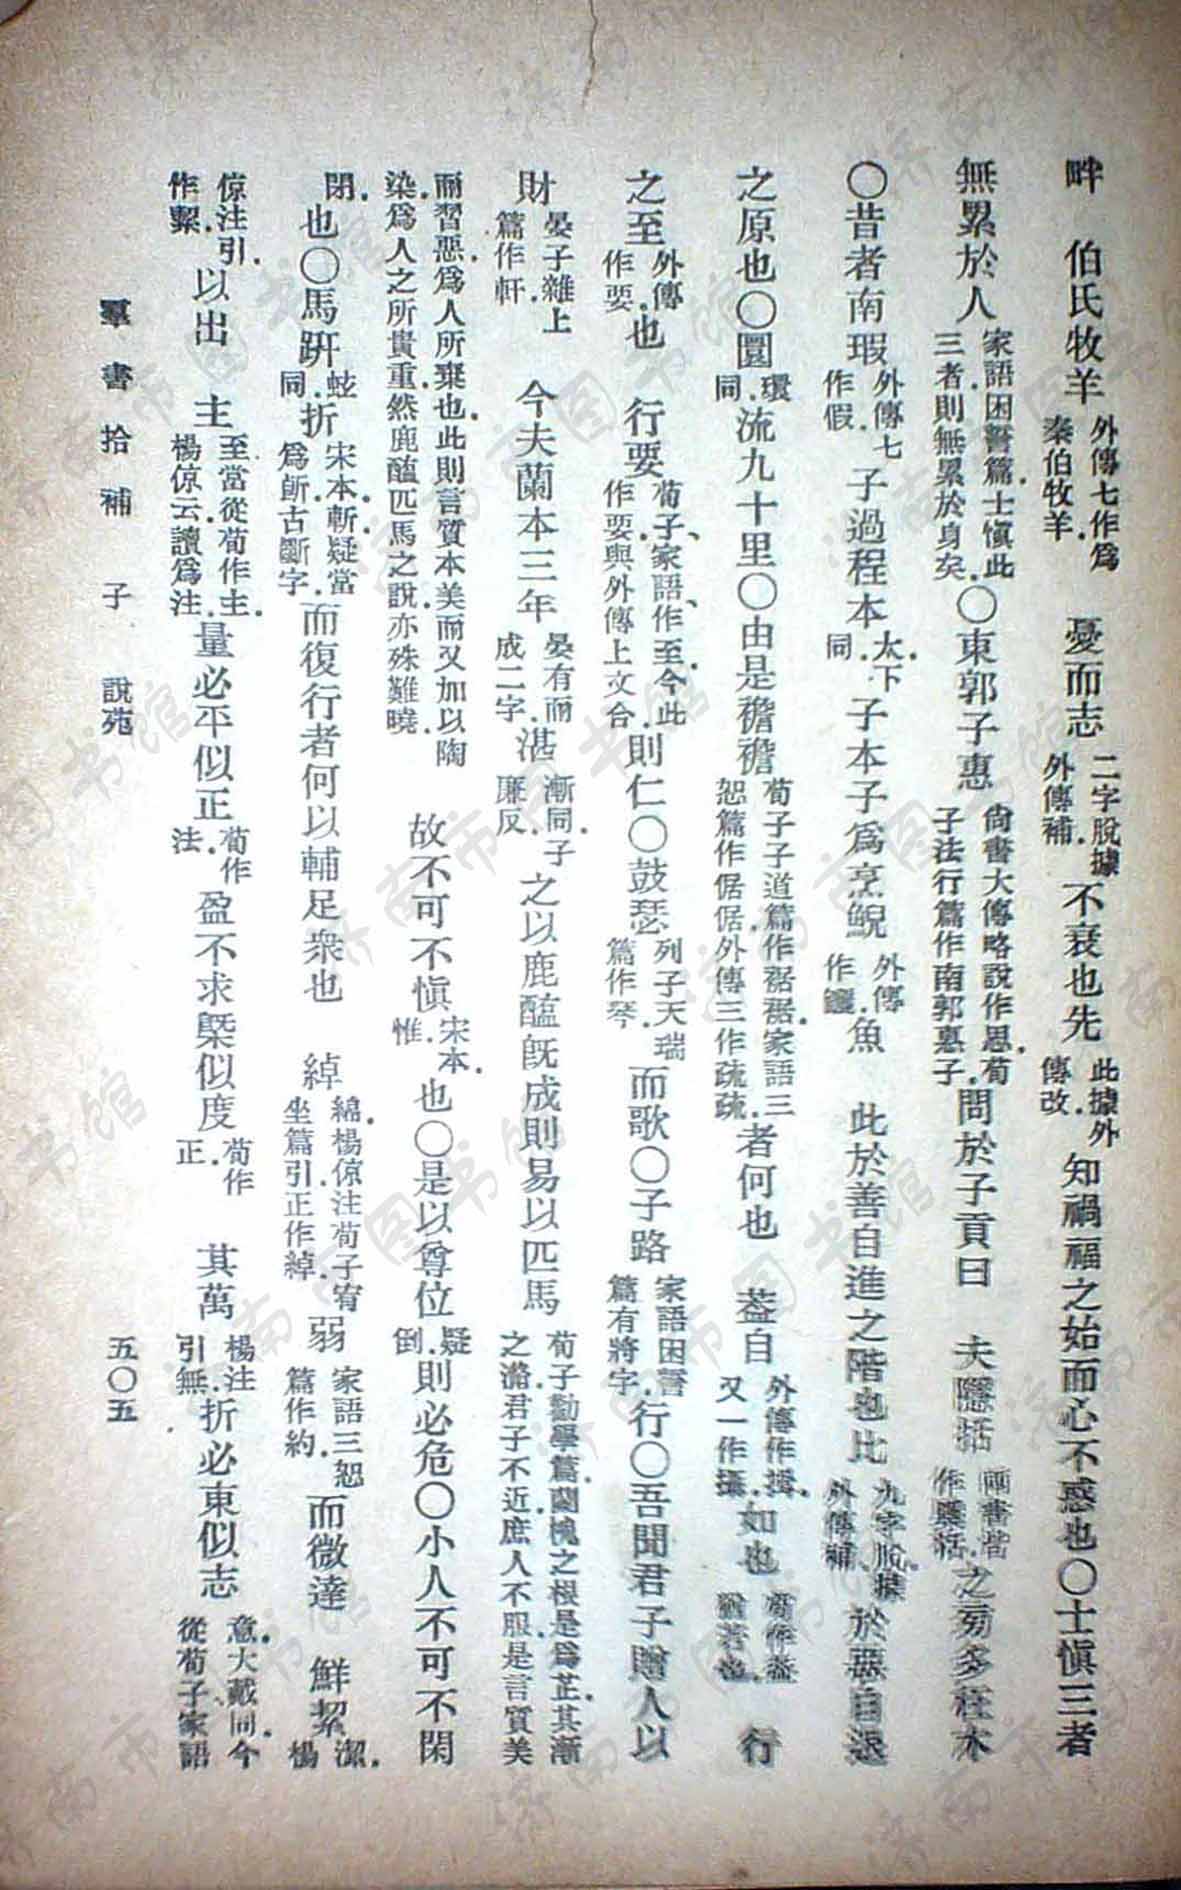 畔　伯氏牧羊外傳七作爲秦伯牧羊．　憂而志二字脫據外傳補．不衰也先此據外傳改．知禍福之始而心不惑也〇士愼三者
無累於人家語困誓篇．士愼此三者．則無累於身矣．〇東郭子惠尙書大傳略說作思．荀子法行篇作南郭惠子．問於子貢曰　夫隱括兩書皆作櫽栝．之旁多枉木
〇昔者南瑕外傳七作假．子過程本太．下同．子本子爲烹鯢外傳作鱺．魚　此於善自進之階也比九字脫．據外傳補．於惡自退
之原也〇圜環．同．流九十里〇由是襜襜荀子子道篇作裾裾．家語三恕篇作倨倨．外傳三作疏疏．者何也　葢自外傳作揖．又一作攝．如也荀作葢猶若也．　行
之至外傳作要．也　行要荀子、家語、作至．今此作要與外傳上文合．則仁〇鼓瑟列子天瑞篇作琴．而歌〇子路家語困誓篇有將字．行〇吾聞君子贈人以
財晏子雜上篇作軒．　今夫蘭本三年晏有而成二字．湛漸同．子廉反．之以鹿醢旣成則易以匹馬荀子勸學篇．蘭槐之根是爲芷．其漸之滫．君子不近．庶人不服．是言質美
而習惡．爲人所棄也．此則言質本美而又加以陶染．爲人之所貴重．然鹿醢匹馬之說．亦殊難曉．　故不可不愼宋本．惟．也〇是以尊位疑倒．則必危〇小人不可不閑
閉．也〇馬趼蚿．同．折宋本．斬．疑當爲斮．古斷字．而復行者何以輔足衆也　綽綿．楊倞注荀子宥坐篇引正作綽．弱家語三恕篇作約．而微達　鮮絜潔．楊
倞注引．作絜．以出　主至當從荀作主．楊倞云．讀爲注．量必平似正荀作法．盈不求槩似度荀作正．　其萬楊注引無．折必東似志意．大戴同．今從荀子家語
羣書拾補　子　說苑
五〇五